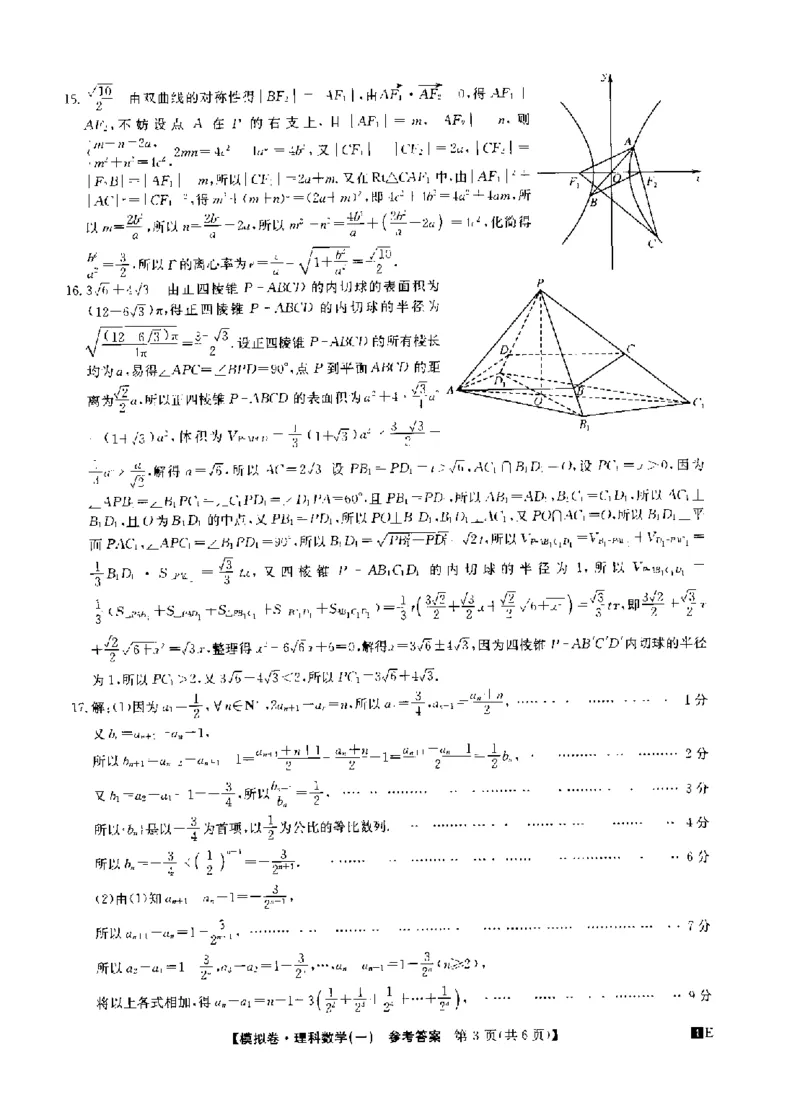 15. √10/2 由双曲线的对称性得|BF₂|=|AF₁|,由AF₁·AF₂=0,得AF₁⊥
AF₂,不妨设点 A 在 Γ 的右支上,且|AF₁|=m,|AF₂|=n,则
{m-n=2a, m²+n²=4c², 2mn=4c²-4a²=4b²,又|CF₁|-|CF₂|=2a,|CF₂|=
|F₁B|=|AF₂|=m,所以|CF₁|=2a+m.又在Rt△CAF₁中,由|AF₁|²+
|AC|²=|CF₁|²,得m²+(m+n)²=(2a+m)²,即4c²+4b²=4a²+4am,所
以m=2b²/a,所以n=2b²/a-2a,所以m²+n²=4b⁴/a²+(2b²/a-2a)²=4c²,化简得
b²/a²=3/2,所以Γ的离心率为e=c/a=√(1+b²/a²)=√10/2.
16. 3√6+4√3 由正四棱锥 P-ABCD 的内切球的表面积为
(12-6√3)π,得正四棱锥 P-ABCD 的内切球的半径为
√((12-6√3)π/4π)=(3-√3)/2.设正四棱锥P-ABCD的所有棱长
均为a,易得∠APC=∠BPD=90°,点P到平面ABCD的距
离为√2/2a,所以正四棱锥P-ABCD的表面积为a²+4×√3/4a²
=(1+√3)a²,体积为V=1/3(1+√3)a²×(3-√3)/2=
1/3a²×a/√2,解得a=√6.所以AC=2√3.设PB₁=PD₁=t>√6,AC₁∩B₁D₁=O,设PC₁=x>0,因为
∠APB₁=∠B₁PC₁=∠C₁PD₁=∠D₁PA=60°,且PB₁=PD₁,所以AB₁=AD₁,B₁C₁=C₁D₁,所以AC₁⊥
B₁D₁,且O为B₁D₁的中点,又PB₁=PD₁,所以PO⊥B₁D₁,B₁D₁⊥AC₁,又PO∩AC₁=O,所以B₁D₁⊥平
面PAC₁,∠APC₁=∠B₁PD₁=90°,所以B₁D₁=√(PB₁²+PD₁²)=√2t,所以V=V+V=
1/3B₁D₁·S=√3/3tx,又四棱锥 P-AB₁C₁D₁ 的内切球的半径为1,所以V=
1/3(S+S+S+S+S)=1/3t(3√2/2+√3/2x+√2/2√(6+x²))=√3/3tx,即3√2/2+√3/2x
+√2/2√(6+x²)=√3x,整理得x²-6√6x+6=0,解得x=3√6±4√3,因为四棱锥P-AB′C′D′内切球的半径
为1,所以PC₁>2,又3√6-4√3<2,所以PC₁=3√6+4√3.
P
A
B
C
D
O
D₁
B₁
C₁
y
A
F₁
O
F₂
x
B
C
17. 解:(1)因为a₁=1/2,∀n∈N*,2aₙ₊₁-aₙ=n,所以a₂=3/4,aₙ₊₁=(aₙ+n)/2, 1分
又bₙ=aₙ₊₁-aₙ-1,
所以bₙ₊₁=aₙ₊₂-aₙ₊₁-1=(aₙ₊₁+n+1)/2-(aₙ+n)/2-1=(aₙ₊₁-aₙ-1)/2=1/2bₙ, 2分
又b₁=a₂-a₁-1=-3/4,所以bₙ₊₁/bₙ=1/2, 3分
所以{bₙ}是以-3/4为首项,以1/2为公比的等比数列. 4分
所以bₙ=-3/4×(1/2)ⁿ⁻¹=-3/2ⁿ⁺¹. 6分
(2)由(1)知aₙ₊₁-aₙ-1=-3/2ⁿ⁺¹,
所以aₙ₊₁-aₙ=1-3/2ⁿ⁺¹, 7分
所以a₂-a₁=1-3/2²,a₃-a₂=1-3/2³,…,aₙ-aₙ₋₁=1-3/2ⁿ(n≥2),
将以上各式相加,得aₙ-a₁=n-1-3(1/2²+1/2³+1/2⁴+…+1/2ⁿ), 9分
【模拟卷·理科数学(一) 参考答案 第3页(共6页)】
1E